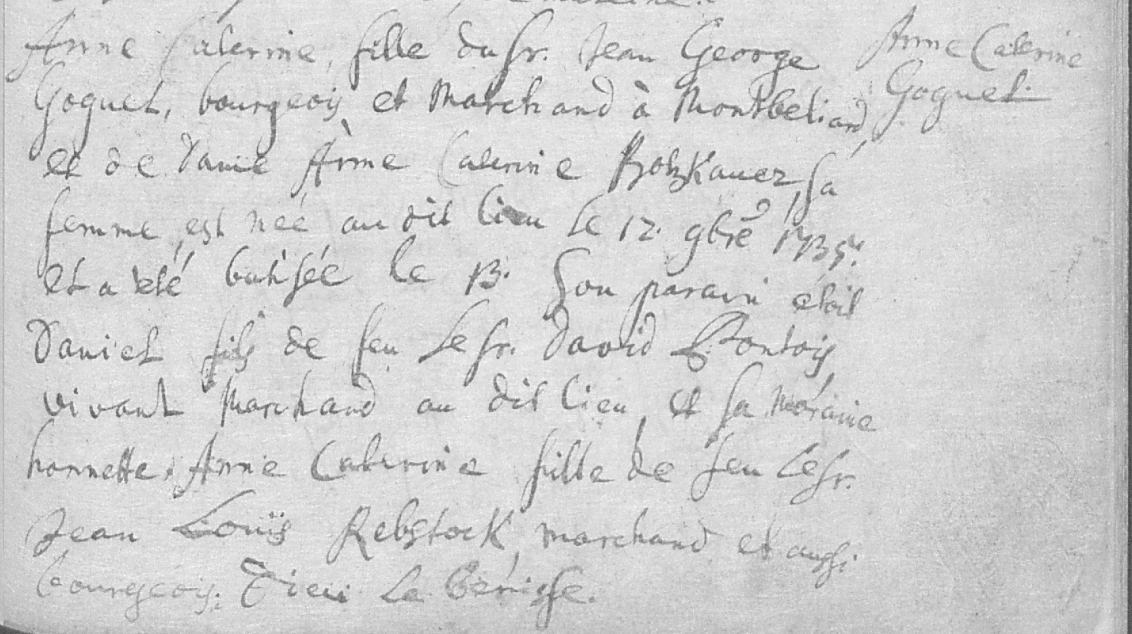 Anne Caterine, fille du Sr. Jean George
Goguel, bourgeois et Marchand à Montbeliard,
et de Dame Anne Caterine sa
femme, est née au dit lieu le 12. 9bre 1735.
et a eté batisée le 13. Son parain etoit
Daniel fils de feu Le Sr. David
vivant Marchand au dit lieu, et sa Maraine
honnette Anne Caterine fille de feu Le Sr.
Jean Louïs Rebstock, marchand et aussi
bourgeois. Dieu La Benisse.
Anne Caterine
Goguel.